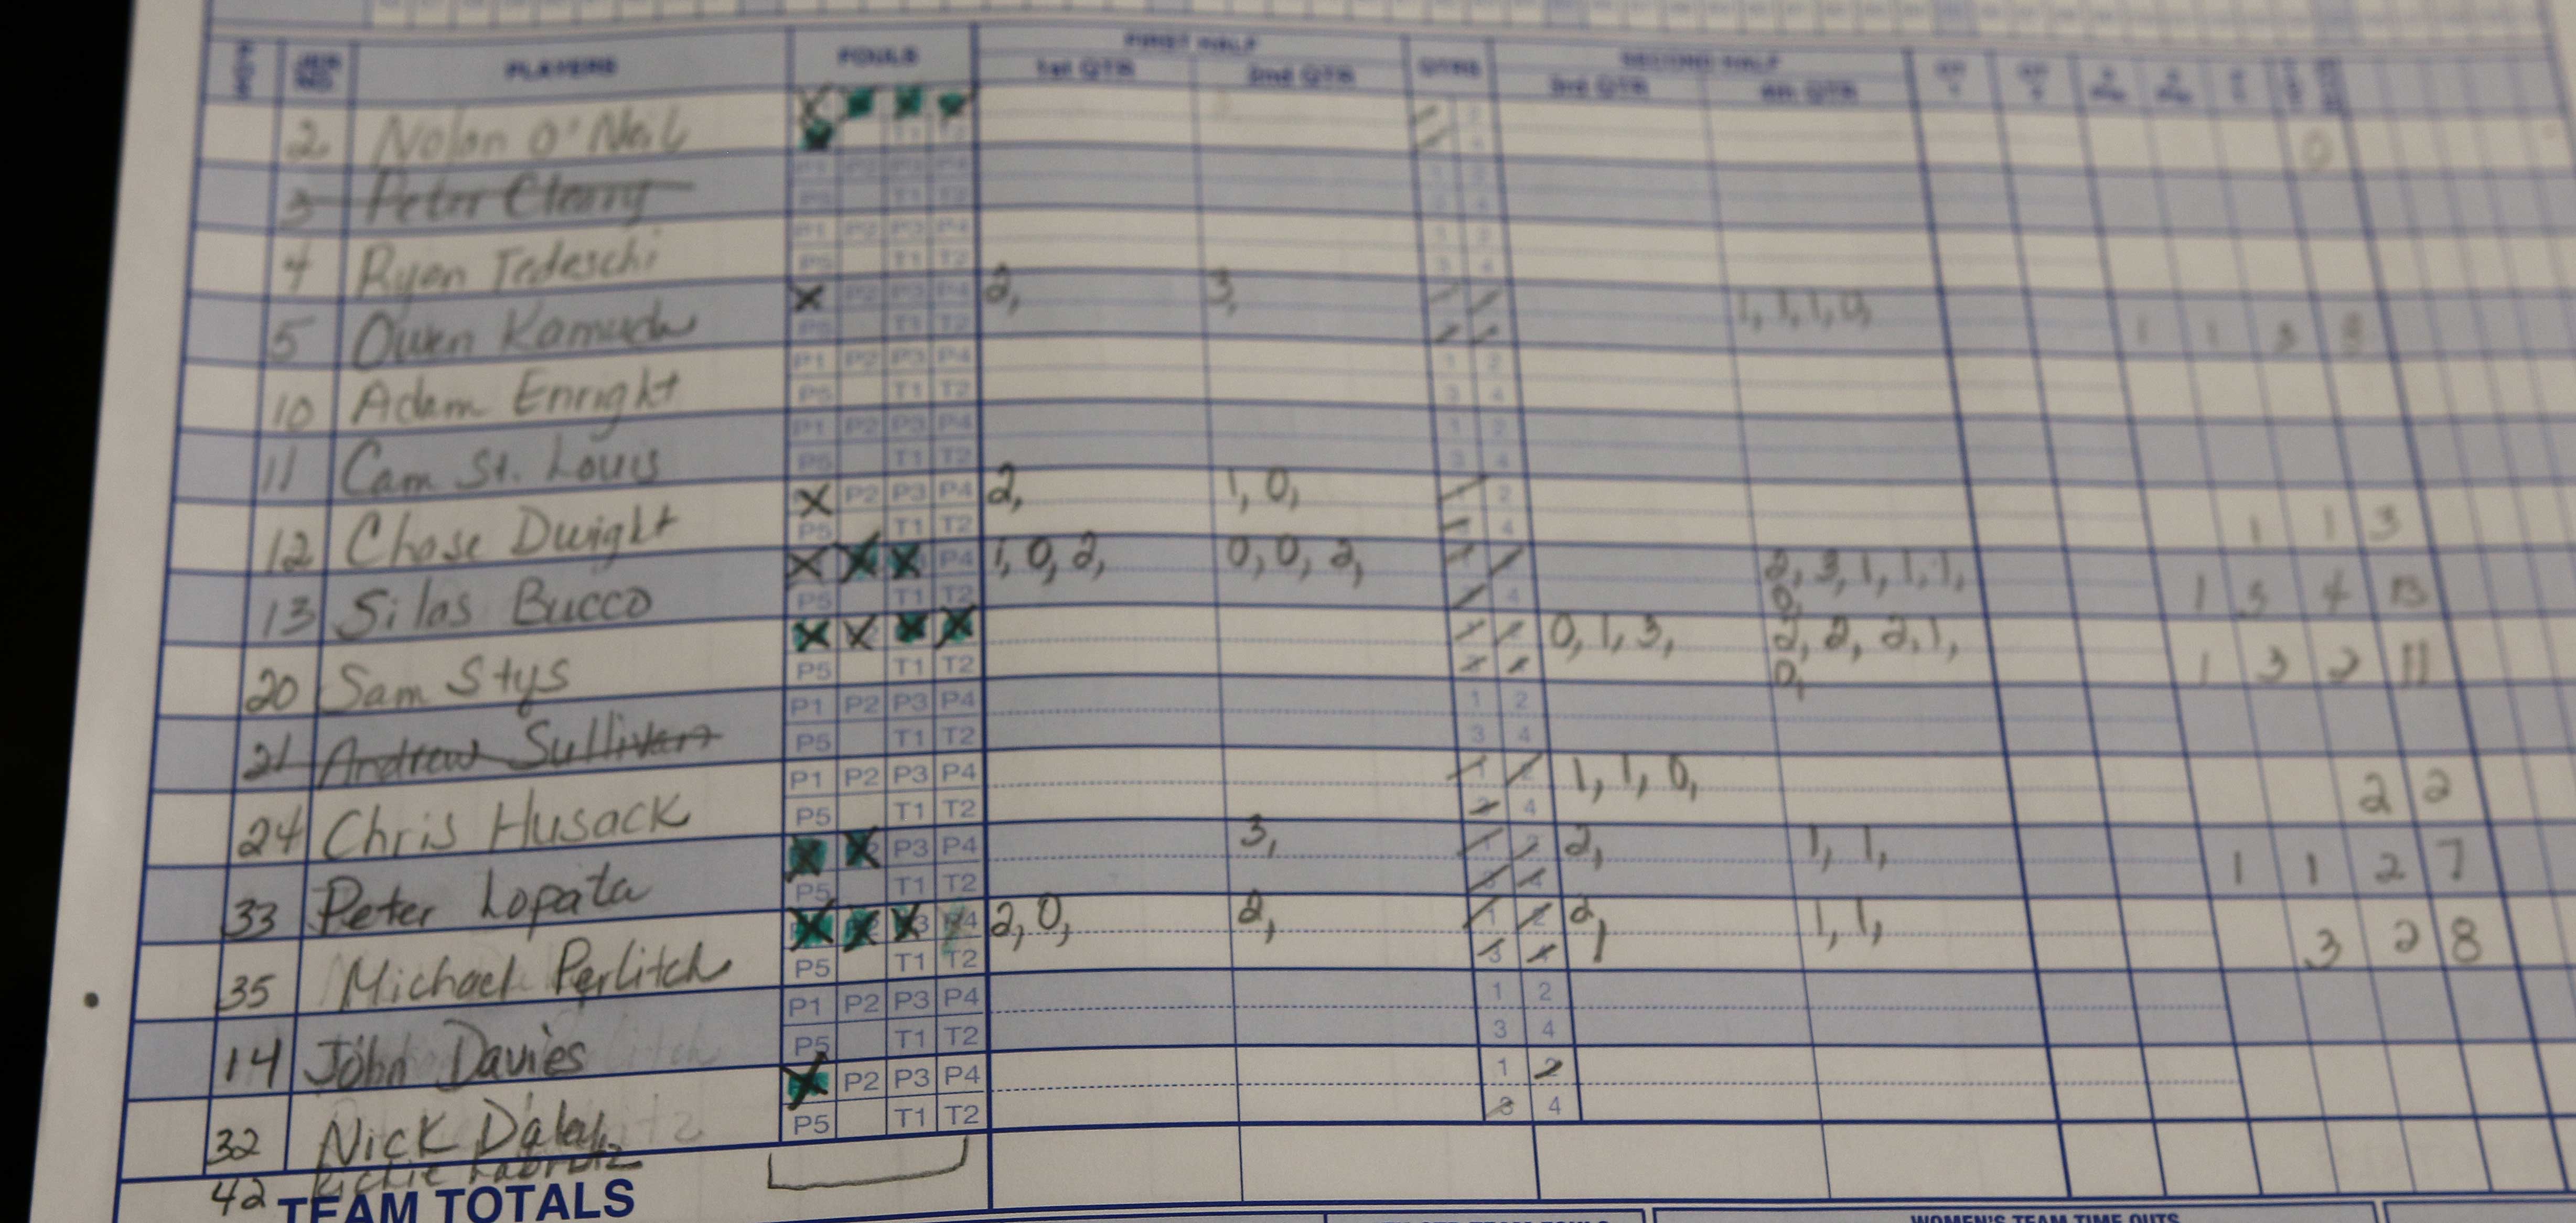 PLAYERS FOULS FIRST HALF QTRS SECOND HALF
1st QTR 2nd QTR 3rd QTR 4th QTR
2 Nolan O'Neil T2 0
3 Peter Cleary P1 P2 P3 P4 P5 T1 T2
4 Ryan Tedeschi P1 P2 P3 P4 P5 T1 T2
5 Owen Kamuda P2 P3 P4 P5 T1 T2 2, 3, 1, 1, 1, 0, 1 1 3 8
10 Adam Enright P1 P2 P3 P4 P5 T1 T2 1 2 3 4
11 Cam St. Louis P1 P2 P3 P4 P5 T1 T2 1 2 3 4
12 Chase Dwight P2 P3 P4 P5 T1 T2 2, 1, 0, 2 4 1 1 3
13 Silas Bucco P4 P5 T1 T2 1, 0, 2, 0, 0, 2, 4 2, 3, 1, 1, 1, 0, 1 3 4 13
20 Sam Stys P5 T1 T2 0, 1, 3, 2, 2, 2, 1, 0, 1 3 2 11
21 Andrew Sullivan P1 P2 P3 P4 P5 T1 T2 1 2 3 4
24 Chris Husack P1 P2 P3 P4 P5 T1 T2 1 2 3 4 1, 1, 0, 2 2
33 Peter Lopata P3 P4 P5 T1 T2 3, 1 2 3 4 2, 1, 1, 1 1 2 7
35 Michael Perlitch 3 P4 P5 T1 T2 2, 0, 2, 1 2 3 4 2, 1, 1, 3 2 8
14 John Davies P1 P2 P3 P4 P5 T1 T2 1 2 3 4
32 Nick Daley P2 P3 P4 P5 T1 T2 1 2 3 4
42 Richie
TEAM TOTALS
WOMEN'S TEAM TIME OUTS